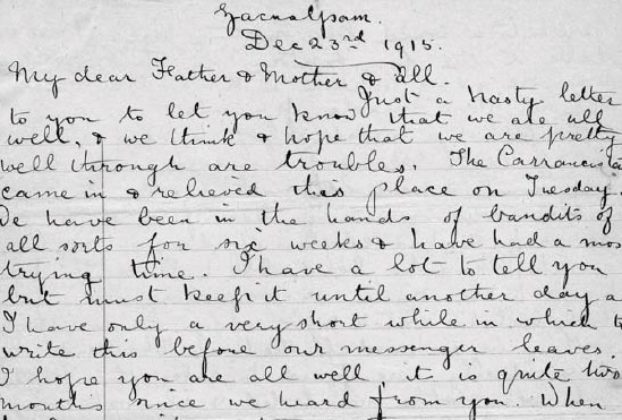 Zacualpam.
Dec 23rd 1915.
My dear Father & Mother & all.
Just a hasty letter
to you to let you know that we are all
well, & we think & hope that we are pretty
well through are troubles. The Carrancista
came in & relieved this place on Tuesday.
We have been in the hands of bandits of
all sorts for six weeks & have had a mos
trying time. I have a lot to tell you
but must keep it until another day a
I have only a very short while in which t
write this before our messenger leaves.
I hope you are all well, it is quite two
months since we heard from you. When